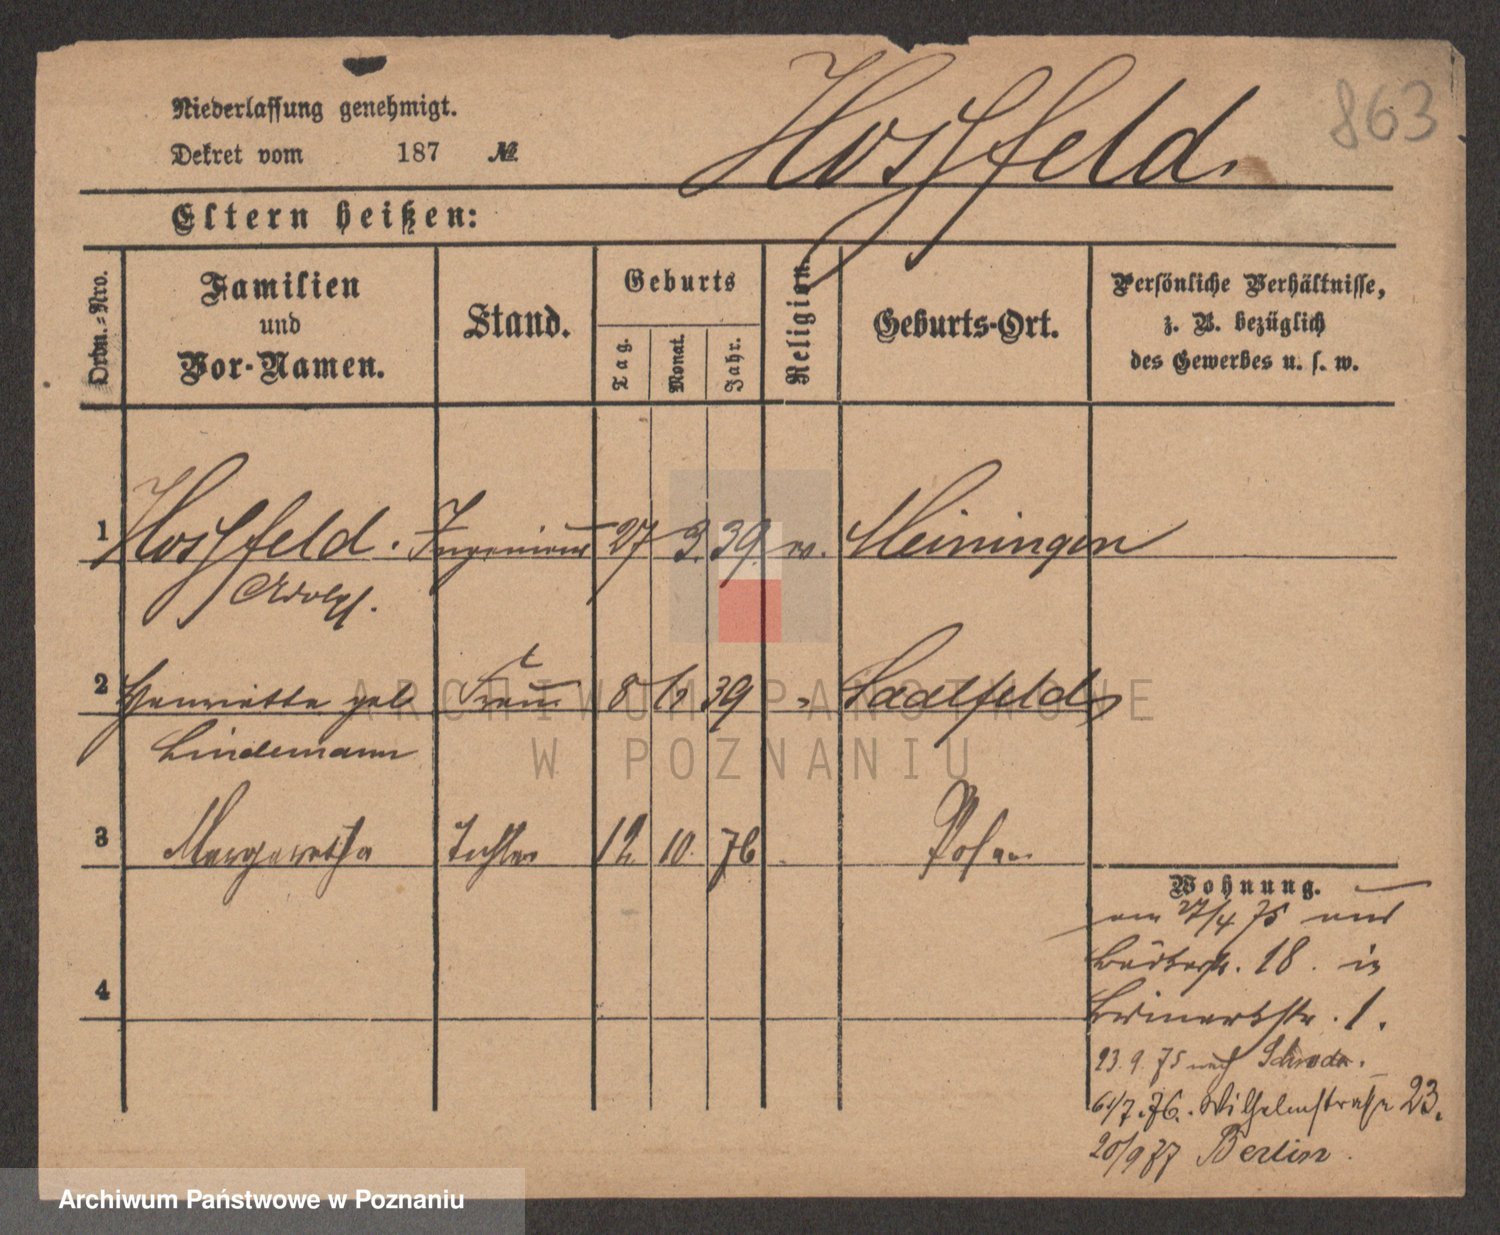 863
Hossfeld.
Niederlassung genehmigt.
Dekret vom 187 №
Eltern heißen:
Ordn.-Nro.
Familien und Vor-Namen.
Stand.
Geburts
Tag.
Monat.
Jahr.
Religion.
Geburts-Ort.
Persönliche Verhältnisse,
z. B. bezüglich
des Gewerbes u. s. w.
1 Hossfeld. Ingenieur 27 3. 39. ev. Meiningen
Adolf.
2 Henriette geb. Frau 8 39 " Saalfeld
Lindemann
3 Margaretha Tochter 12. 10. 76 Posen
Wohnung.
am 27/4 75 aus
18. in
1.
23. 9. 75 nach Schroda.
6/7. 76. Wilhelmstraße 23.
20/9 77 Berlin.
4
ARCHIWUM PAŃSTWOWE
W POZNANIU
Archiwum Państwowe w Poznaniu